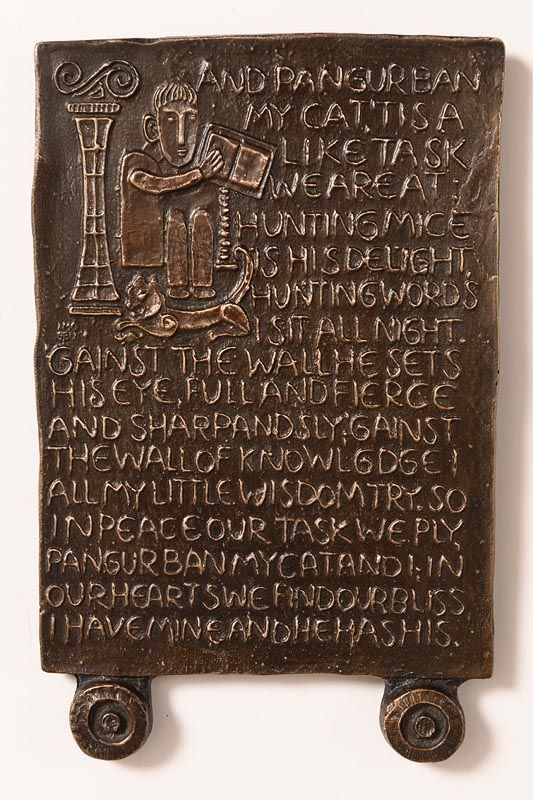 I AND PANGUR BAN
MY CAT, 'TIS A
LIKE TASK
WE ARE AT;
HUNTING MICE
IS HIS DELIGHT,
HUNTING WORDS
I SIT ALL NIGHT.
'GAINST THE WALL HE SETS
HIS EYE, FULL AND FIERCE
AND SHARP AND SLY; 'GAINST
THE WALL OF KNOWLEDGE I
ALL MY LITTLE WISDOM TRY. SO
IN PEACE OUR TASK WE PLY,
PANGUR BAN MY CAT AND I; IN
OUR HEARTS WE FIND OUR BLISS
I HAVE MINE AND HE HAS HIS.